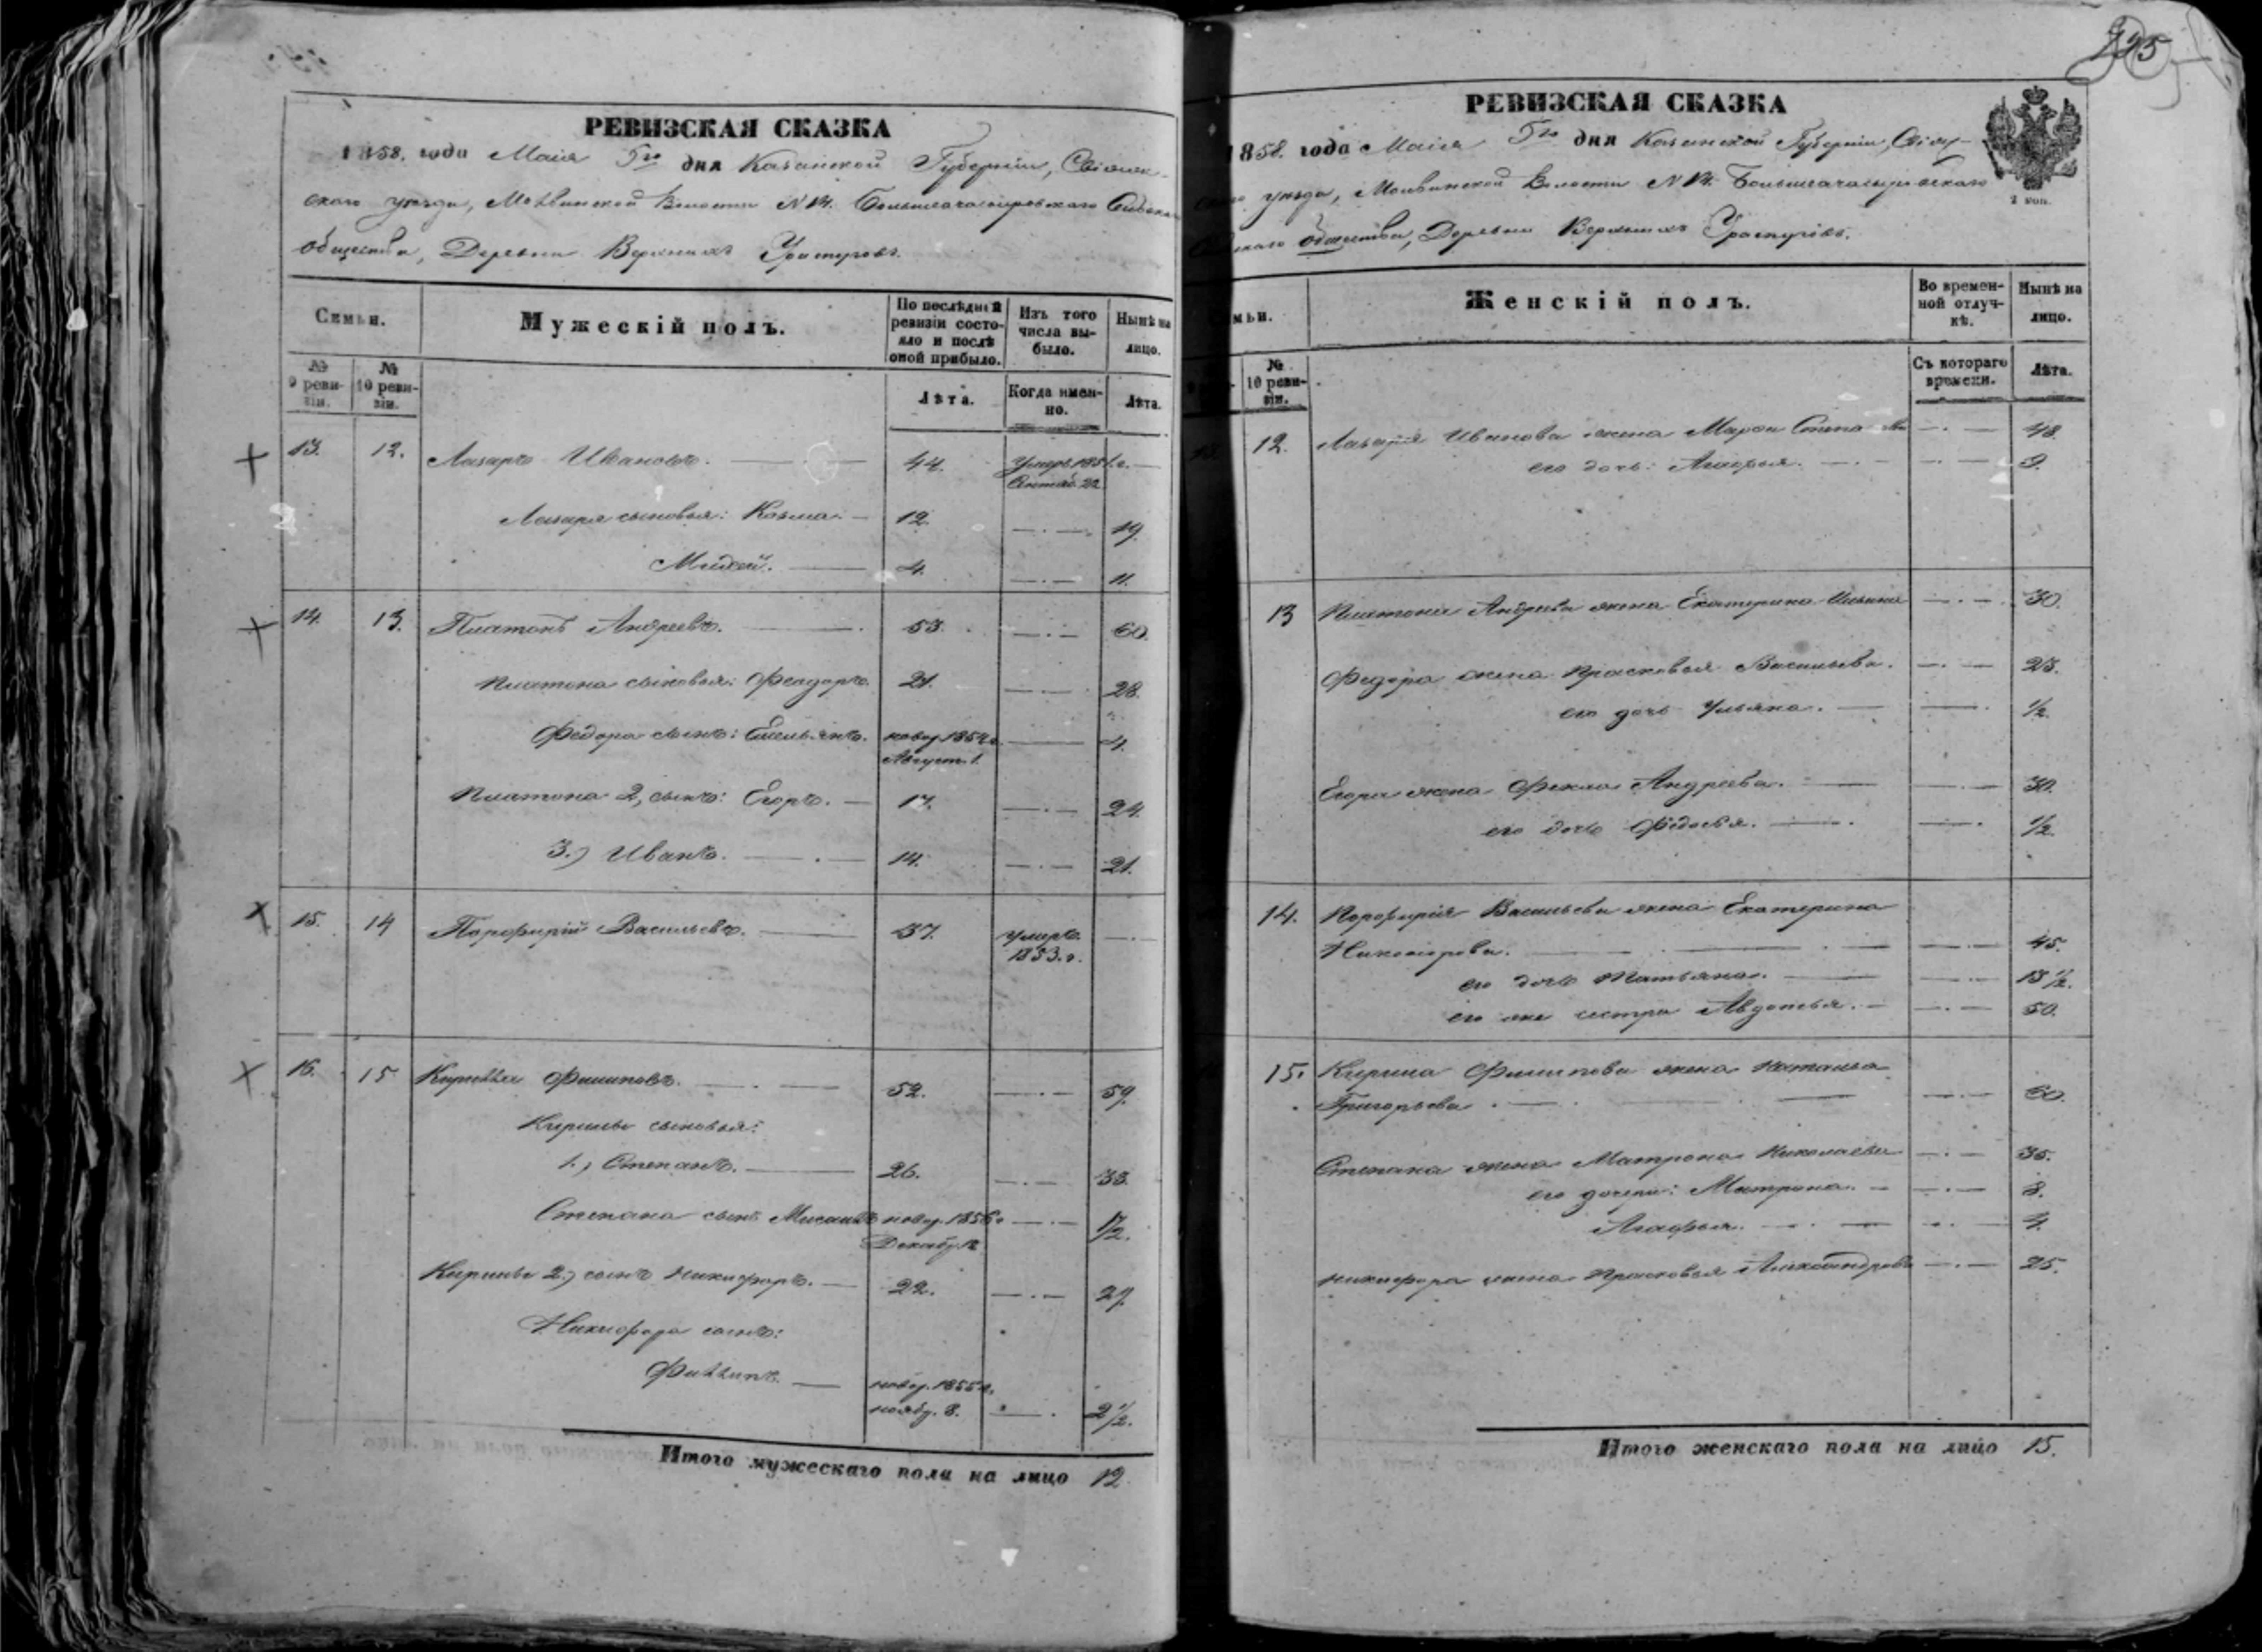 РЕВИЗСКАЯ СКАЗКА
1858. года Маія 5го дня Казанской Губерніи, Свіяж-
скаго уѣзда, Молвинской Волости N 14. Большеачасырскаго Сельскаго
общества, Деревни Верхнихъ Ураспуговъ.
Семьи.
Мужескій полъ.
По послѣдней ревизіи состояло и послѣ оной прибыло.
Изъ того числа выбыло.
Нынѣ на лицо.
№ 9 ревизіи.
№ 10 ревизіи.
Лѣта.
Когда именно.
Лѣта.
13. 12. Лазарь Ивановъ. 44. Умеръ 1851.г.
Октяб. 22
Лазаря сыновья: Козма. 12. 19.
Михей. 4. 11.
14. 13. Платонъ Андреевъ. 53. 60.
Платона сыновья: Феодоръ. 21. 28.
Федора сынъ: Емельянъ. новор. 1854г. 4.
Август. 1.
Платона 2, сынъ: Егоръ. 17. 24.
3.) Иванъ. 14. 21.
15. 14 Порфирій Васильевъ. 37. умеръ.
1853.г.
16. 15 Кирилла Филиповъ. 52. 59.
Кириллы сыновья:
1.) Степанъ. 26. 33.
Степана сынъ новор. 1856г 1 1/2.
Декабр. 12
Кириллы 2.) сынъ Никифоръ. 22. 29.
Никифора сынъ:
Филлипъ. новор. 1855г.
ноябр. 8. 2 1/2.
Итого мужескаго пола на лицо 12
РЕВИЗСКАЯ СКАЗКА
1858. года Маія 5го дня Казанской Губерніи, Свіяж-
скаго уѣзда, Молвинской Волости N 14. Большеачасырскаго
Сельскаго общества, Деревни Верхнихъ Ураспуговъ.
2 коп.
Семьи.
Женскій полъ.
Во временной отлучкѣ.
Нынѣ на лицо.
№ 10 ревизіи.
Съ котораго времени.
Лѣта.
13. 12. Лазаря Иванова жена Марфа 48.
его дочь: Агафья. 9.
13 Платона Андреева жена Екатерина Ильина 30.
Федора жена Прасковья Васильева. 25.
его дочь Ульяна. 1/2.
Егора жена Фекла Андреева. 30.
его дочь Федосья. 1/2.
14. Порфирія Васильева жена Екатерина
Никифорова. 45.
его дочь Татьяна. 13 1/2.
его же сестра Авдотья. 50.
15. Кирила Филипова жена Наталья
Григорьева 60.
Степана жена Матрона Николаева 35.
его дочери: Матрона. 8.
Агафья. 4.
Никифора жена Прасковья Александрова 25.
Итого женскаго пола на лицо 15.